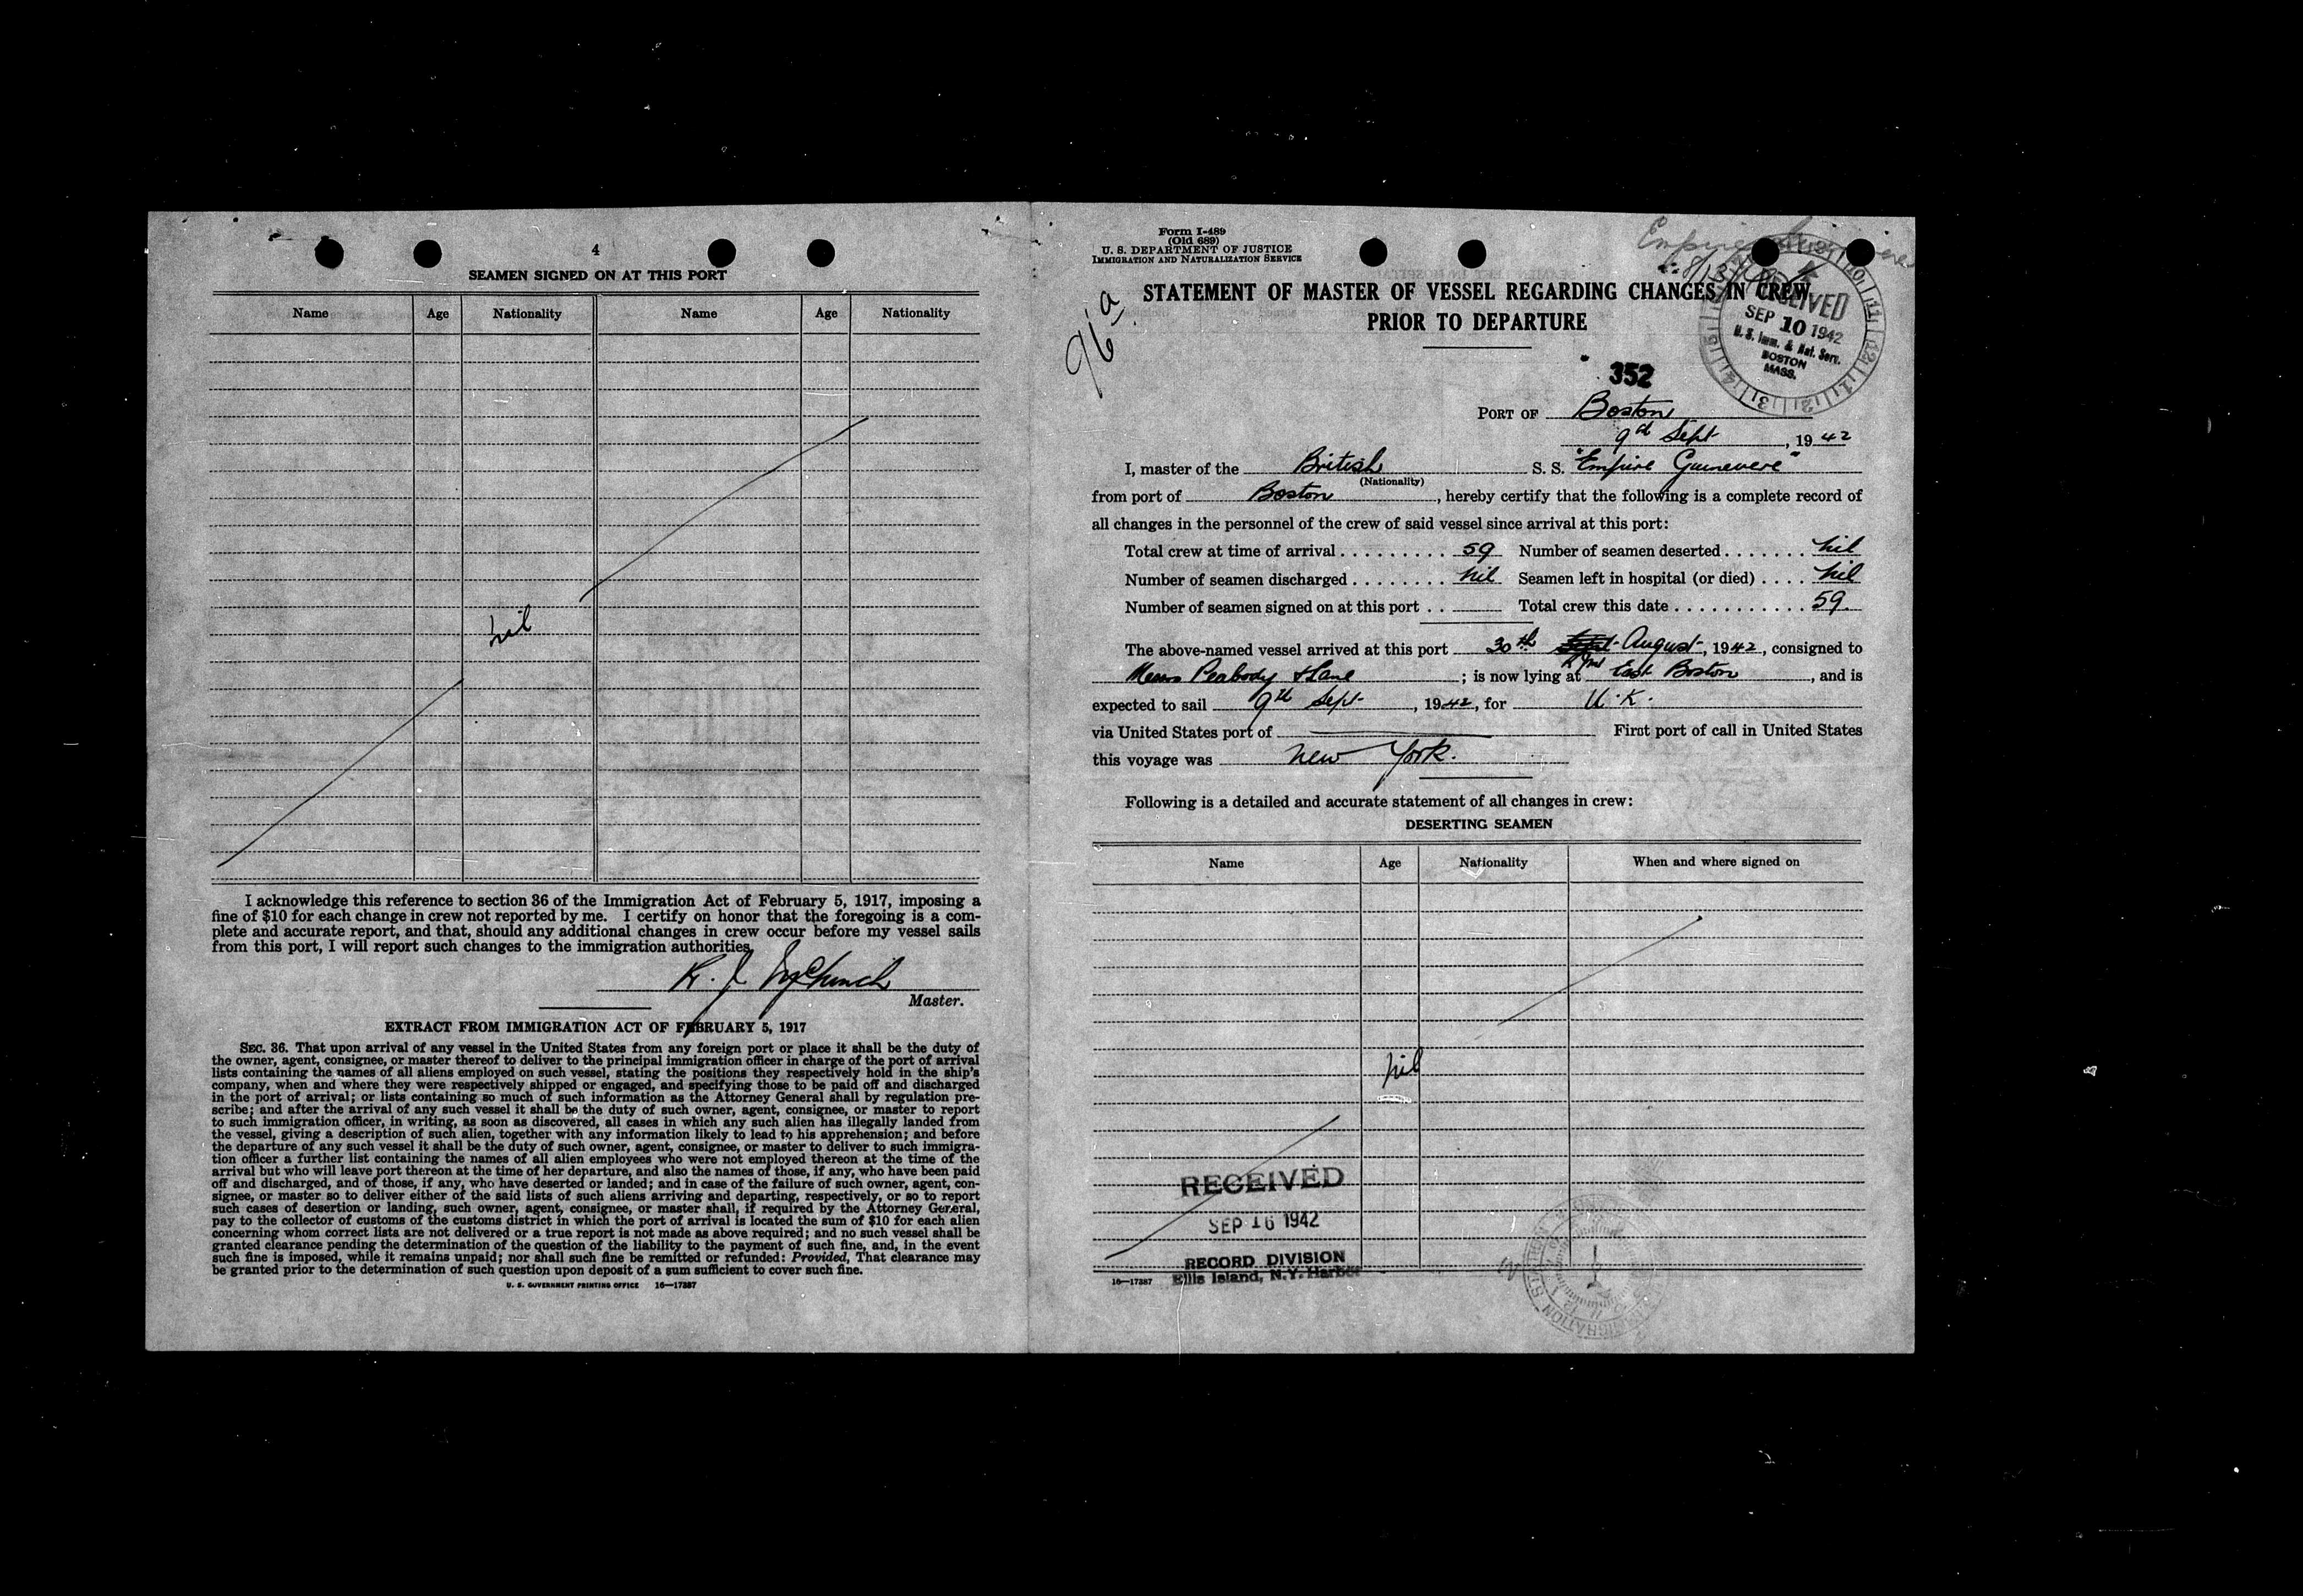 4
SEAMEN SIGNED ON AT THIS PORT
Name Age Nationality Name Age Nationality
nil
I acknowledge this reference to section 36 of the Immigration Act of February 5, 1917, imposing a
fine of $10 for each change in crew not reported by me. I certify on honor that the foregoing is a com-
plete and accurate report, and that, should any additional changes in crew occur before my vessel sails
from this port, I will report such changes to the immigration authorities.
Master.
EXTRACT FROM IMMIGRATION ACT OF FEBRUARY 5, 1917
SEC. 36. That upon arrival of any vessel in the United States from any foreign port or place it shall be the duty of
the owner, agent, consignee, or master thereof to deliver to the principal immigration officer in charge of the port of arrival
lists containing the names of all aliens employed on such vessel, stating the positions they respectively hold in the ship's
company, when and where they were respectively shipped or engaged, and specifying those to be paid off and discharged
in the port of arrival; or lists containing so much of such information as the Attorney General shall by regulation pre-
scribe; and after the arrival of any such vessel it shall be the duty of such owner, agent, consignee, or master to report
to such immigration officer, in writing, as soon as discovered, all cases in which any such alien has illegally landed from
the vessel, giving a description of such alien, together with any information likely to lead to his apprehension; and before
the departure of any such vessel it shall be the duty of such owner, agent, consignee, or master to deliver to such immigra-
tion officer a further list containing the names of all alien employees who were not employed thereon at the time of the
arrival but who will leave port thereon at the time of her departure, and also the names of those, if any, who have been paid
off and discharged, and of those, if any, who have deserted or landed; and in case of the failure of such owner, agent, con-
signee, or master so to deliver either of the said lists of such aliens arriving and departing, respectively, or so to report
such cases of desertion or landing, such owner, agent, consignee, or master shall, if required by the Attorney General,
pay to the collector of customs of the customs district in which the port of arrival is located the sum of $10 for each alien
concerning whom correct lists are not delivered or a true report is not made as above required; and no such vessel shall be
granted clearance pending the determination of the question of the liability to the payment of such fine, and, in the event
such fine is imposed, while it remains unpaid; nor shall such fine be remitted or refunded: Provided, That clearance may
be granted prior to the determination of such question upon deposit of a sum sufficient to cover such fine.
U. S. GOVERNMENT PRINTING OFFICE 16—17387
Form I-489
(Old 689)
U. S. DEPARTMENT OF JUSTICE
IMMIGRATION AND NATURALIZATION SERVICE
Empire
STATEMENT OF MASTER OF VESSEL REGARDING CHANGES IN CREW
PRIOR TO DEPARTURE
RECEIVED
SEP 10 1942
U. S. Imm. & Nat. Serv.
BOSTON
MASS.
352
PORT OF Boston
9th Sept, 1942
I, master of the British S. S. "Empire Guinevere"
(Nationality)
from port of Boston, hereby certify that the following is a complete record of
all changes in the personnel of the crew of said vessel since arrival at this port:
Total crew at time of arrival . . . . . . . . . 59 Number of seamen deserted . . . . . . . nil
Number of seamen discharged . . . . . . . . nil Seamen left in hospital (or died) . . . . nil
Number of seamen signed on at this port . . Total crew this date . . . . . . . . . . . 59.
The above-named vessel arrived at this port 30th August, 1942, consigned to
Messrs Peabody & Lane; is now lying at East Boston, and is
expected to sail 9th Sept., 1942, for U.K.
via United States port of First port of call in United States
this voyage was New York.
Following is a detailed and accurate statement of all changes in crew:
DESERTING SEAMEN
Name Age Nationality When and where signed on
nil
RECEIVED
SEP 16 1942
RECORD DIVISION
Ellis Island, N.Y. Harbor
16—17387